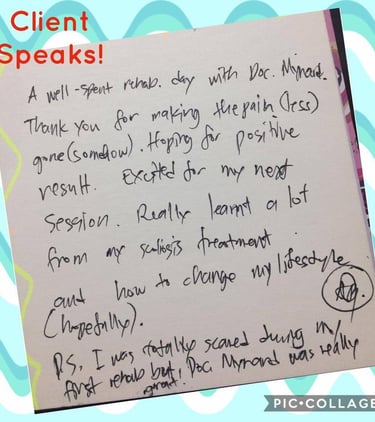 Client
Speaks!
A well-spent rehab. day with Doc. Mynard.
Thank you for making the pain (less)
gone (somehow). Hoping for positive
result. Excited for my next
session. Really learnt a lot
from my scoliosis treatment
and how to change my lifestyle
(hopefully).
P.S. I was totally scared during my
first rehab but, Doc. Mynard was really
great.
PIC•COLLAGE